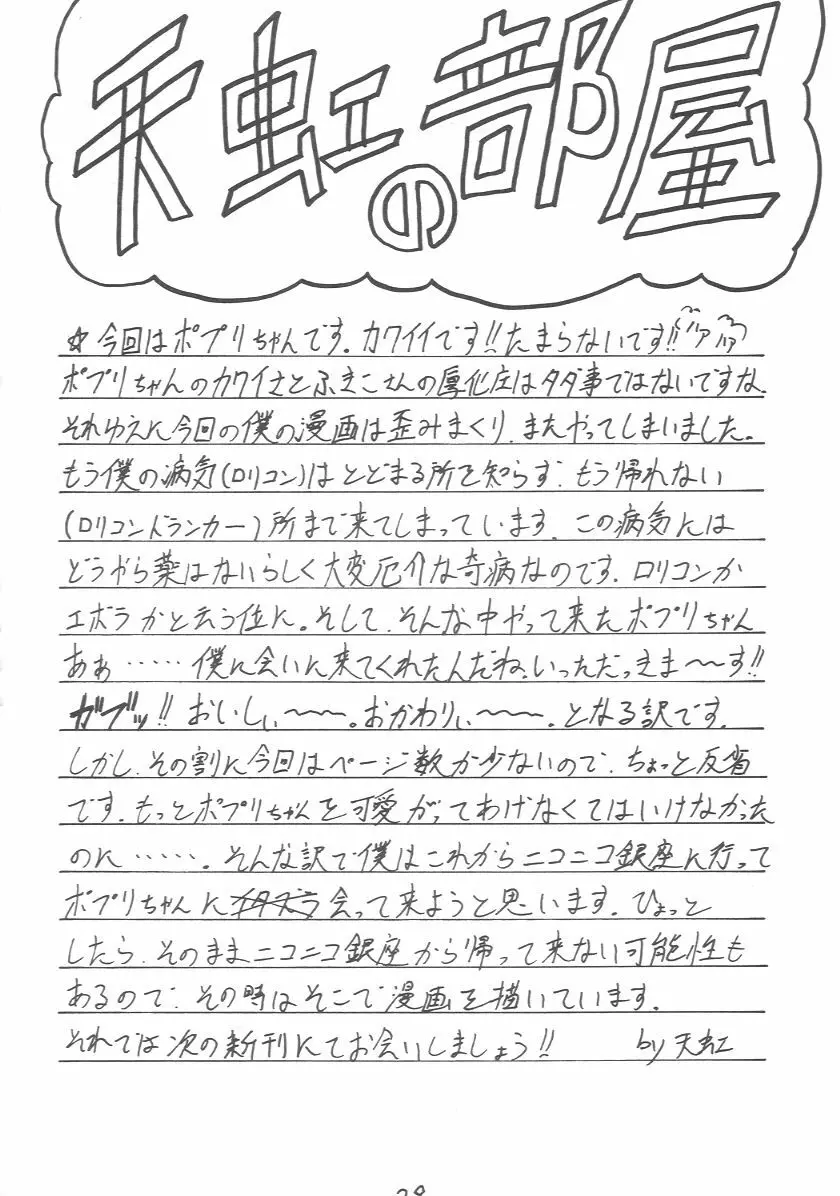 天虹の部屋
☆今回はポプリちゃんです。カワイイです!!たまらないです!!ハァハァ
ポプリちゃんのカワイさとふきこさんの厚化庄はタダ事ではないですな。
それゆえに今回の僕の漫画は歪みまくり、またやってしまいました。
もう僕の病気(ロリコン)はとどまる所を知らず、もう帰れない
(ロリコンドランカー)所まで来てしまっています。この病気には
どうやら薬はないらしく大変厄介な奇病なのです。ロリコンか
エボラかと云う位に。そして、そんな中やって来たポプリちゃん
あぁ……僕に会いに来てくれたんだね、いっただっきま〜〜す!!
ガブッ!!おいしぃ〜〜。おかわりぃ〜〜。となる訳です。
しかし、その割に今回はページ数が少ないので、ちょっと反省
です。もっとポプリちゃんを可愛がってあげなくてはいけなかった
のに……。そんな訳で僕はこれからニコニコ銀座に行って
ポプリちゃんにイタズラ会って来ようと思います。ひょっと
したら、そのままニコニコ銀座から帰って来ない可能性も
あるので、その時はそこで漫画を描いています。
それでは次の新刊にてお会いしましょう!! by天虹
28